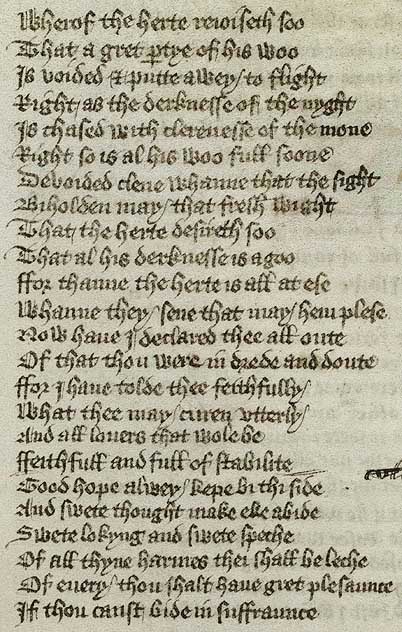 Wherof the herte reioiseth soo
That a gret ꝑtye of his woo
Is voided & putte awey / to flight
Right / as the derknesse of the nyght
Is chased with clerenesse of the mone
Right so is al his woo full soone
Devoided clene whanne that the sight
Biholden may / that fresh wight
That / the herte desireth soo
That al his derknesse is agoo
ffor thanne the herte is all at ese
Whanne they / sene that may / hem plese
Now haue I declared thee all oute
Of that thou were in drede and doute
ffor I haue tolde thee feithfully /
What thee may / curen vtterly /
And all louers that wole be
ffeithfull and full of stabilite
Good hope alwey / kepe bi thi side
And swete thought make eke abide
Swete lokyng and swete speche
Of all thyne harmes thei shall be leche
Of euery / thou shalt haue gret plesaunce
If thou canst bide in suffraunce